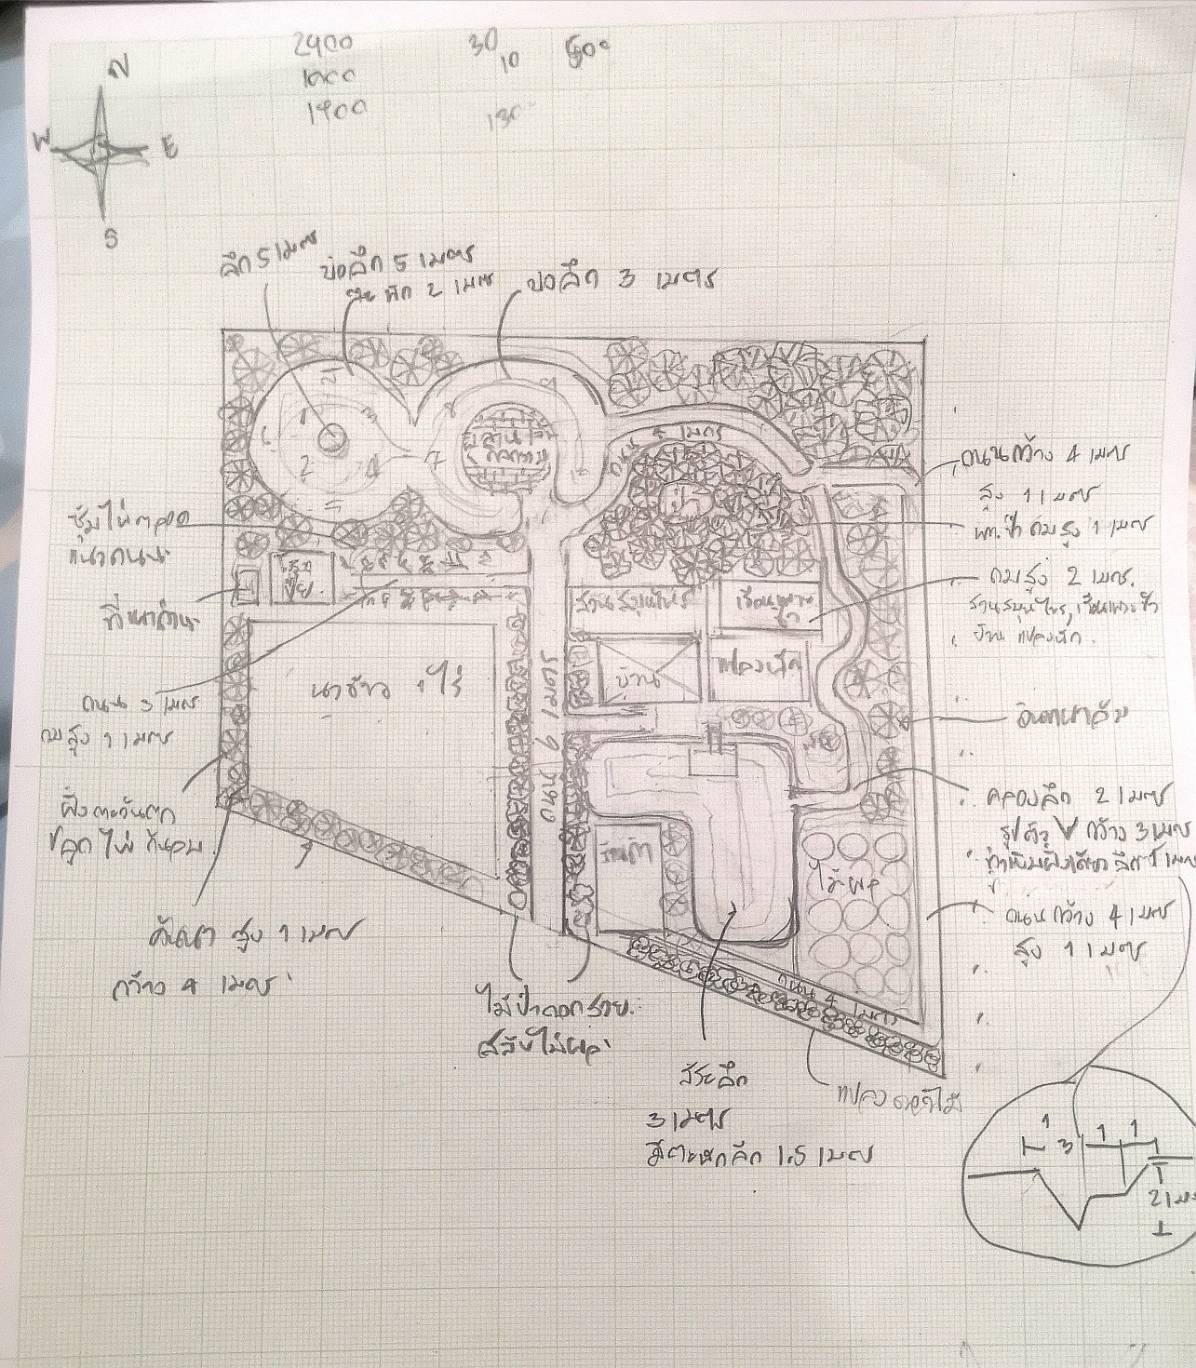 2400
1000
1400
30
10
N
W
E
S
ลึก 5 เมตร
บ่อลึก 5 เมตร
ตะพัก 2 เมตร
บ่อลึก 3 เมตร
ถนน 4 เมตร
ถนนกว้าง 4 เมตร
สูง 1 เมตร
ป่า
พท.ป่า ถมสูง 1 เมตร
ถมสูง 2 เมตร.
สวนสมุนไพร, เรือนเพาะชำ
บ้าน แปลงผัก.
สวนสมุนไพร
เรือนเพาะ
ชำ
บ้าน
แปลงผัก
นาข้าว
ถนน 6 เมตร
ถนน 3 เมตร
ถมสูง 1 เมตร
ฝั่งตะวันตก
ปลูกไผ่ กันลม
คันนา สูง 1 เมตร
กว้าง 4 เมตร
อินทผาลัม
คลองลึก 2 เมตร
รูปตัว V กว้าง 3 เมตร
ไม้ผล
ถนนกว้าง 4 เมตร
สูง 1 เมตร
ร้านค้า
ถนน 4 เมตร
ไม้ป่าดอกสวย
สลับไม้ผล
สระลึก
3 เมตร
มีตะพักลึก 1.5 เมตร
แปลงดอกไม้
1
3
1
1
2 เมตร